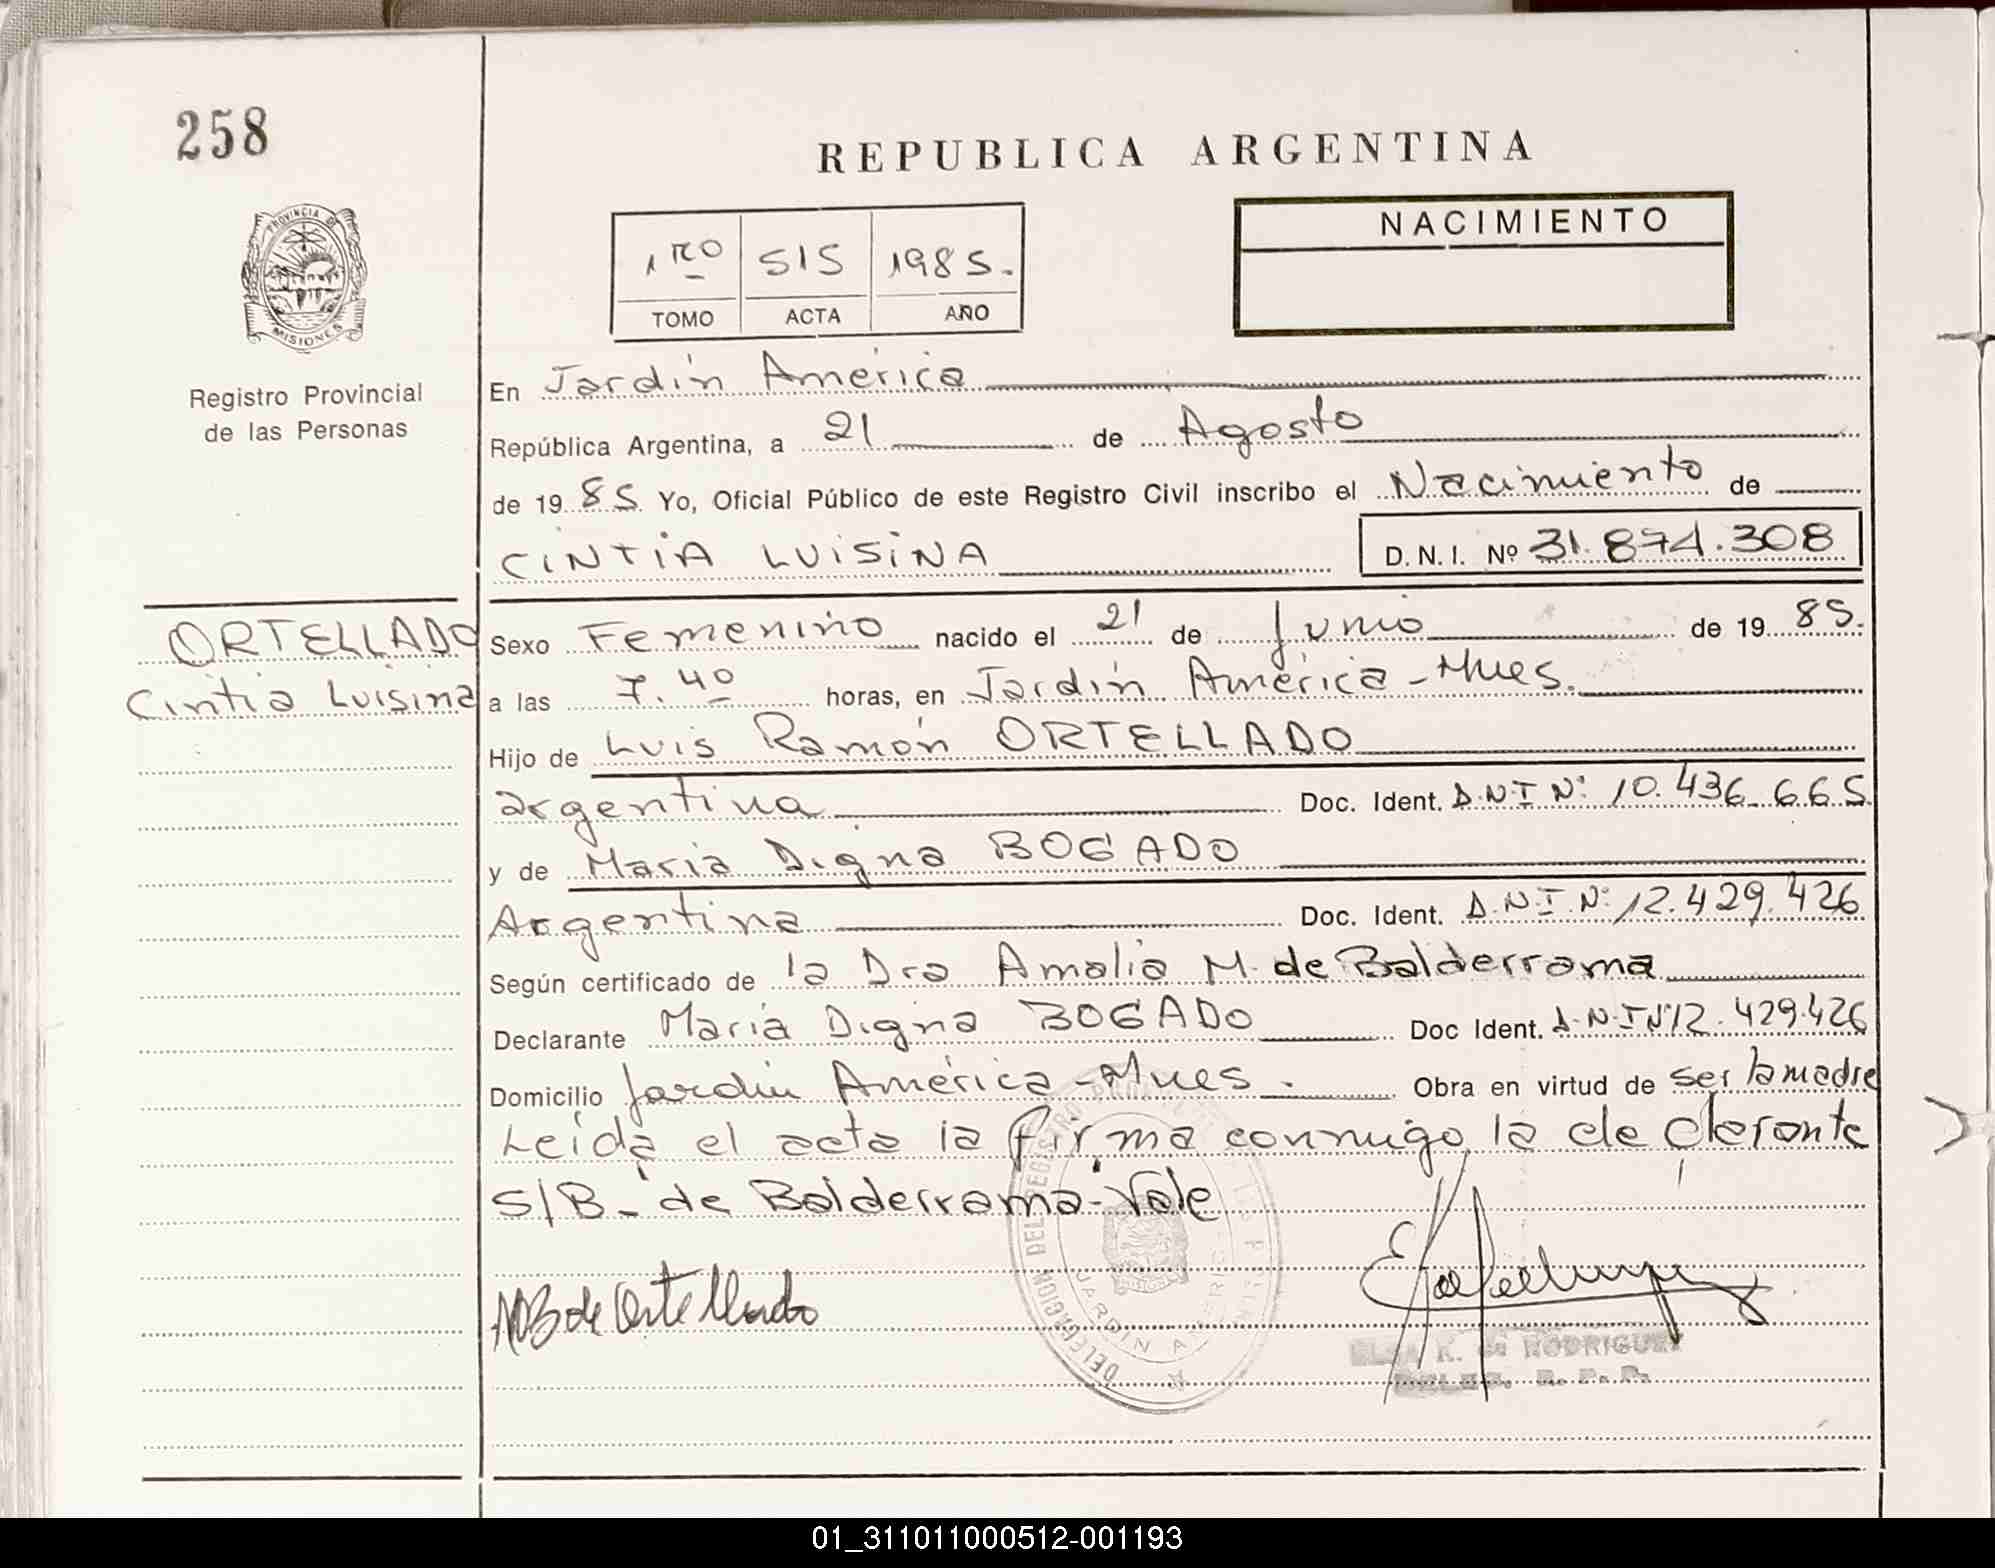 258
REPUBLICA ARGENTINA
PROVINCIA DE MISIONES
1RO 515 1985.
TOMO ACTA AÑO
NACIMIENTO
Registro Provincial
de las Personas
En Jardín América
República Argentina, a 21 de Agosto
de 19 85 Yo, Oficial Público de este Registro Civil inscribo el Nacimiento de
CINTIA LUISINA D.N.I. Nº 31.874.308
ORTELLADO
Cintia Luisina
Sexo Femenino nacido el 21 de Junio de 19 85.
a las 7.40 horas, en Jardín América - Mnes.
Hijo de Luis Ramón ORTELLADO
argentina Doc. Ident. D.N.I Nº 10.436.665
y de Maria Digna BOGADO
Argentina Doc. Ident. D.N.I.Nº 12.429.426
Según certificado de la Dra Amalia M. de Balderrama
Declarante María Digna BOGADO Doc Ident. D.N.I Nº12.429.426
Domicilio Jardín América - Mnes. Obra en virtud de ser la madre
Leída el acta la firma conmigo la declarante
S/B- de Balderrama - Vale
MB de Ortellado
DELEGACION DEL REGISTRO
JARDIN AMERICA
ELSA K. de RODRIGUEZ
DELEG. R. P. P.
01_311011000512-001193